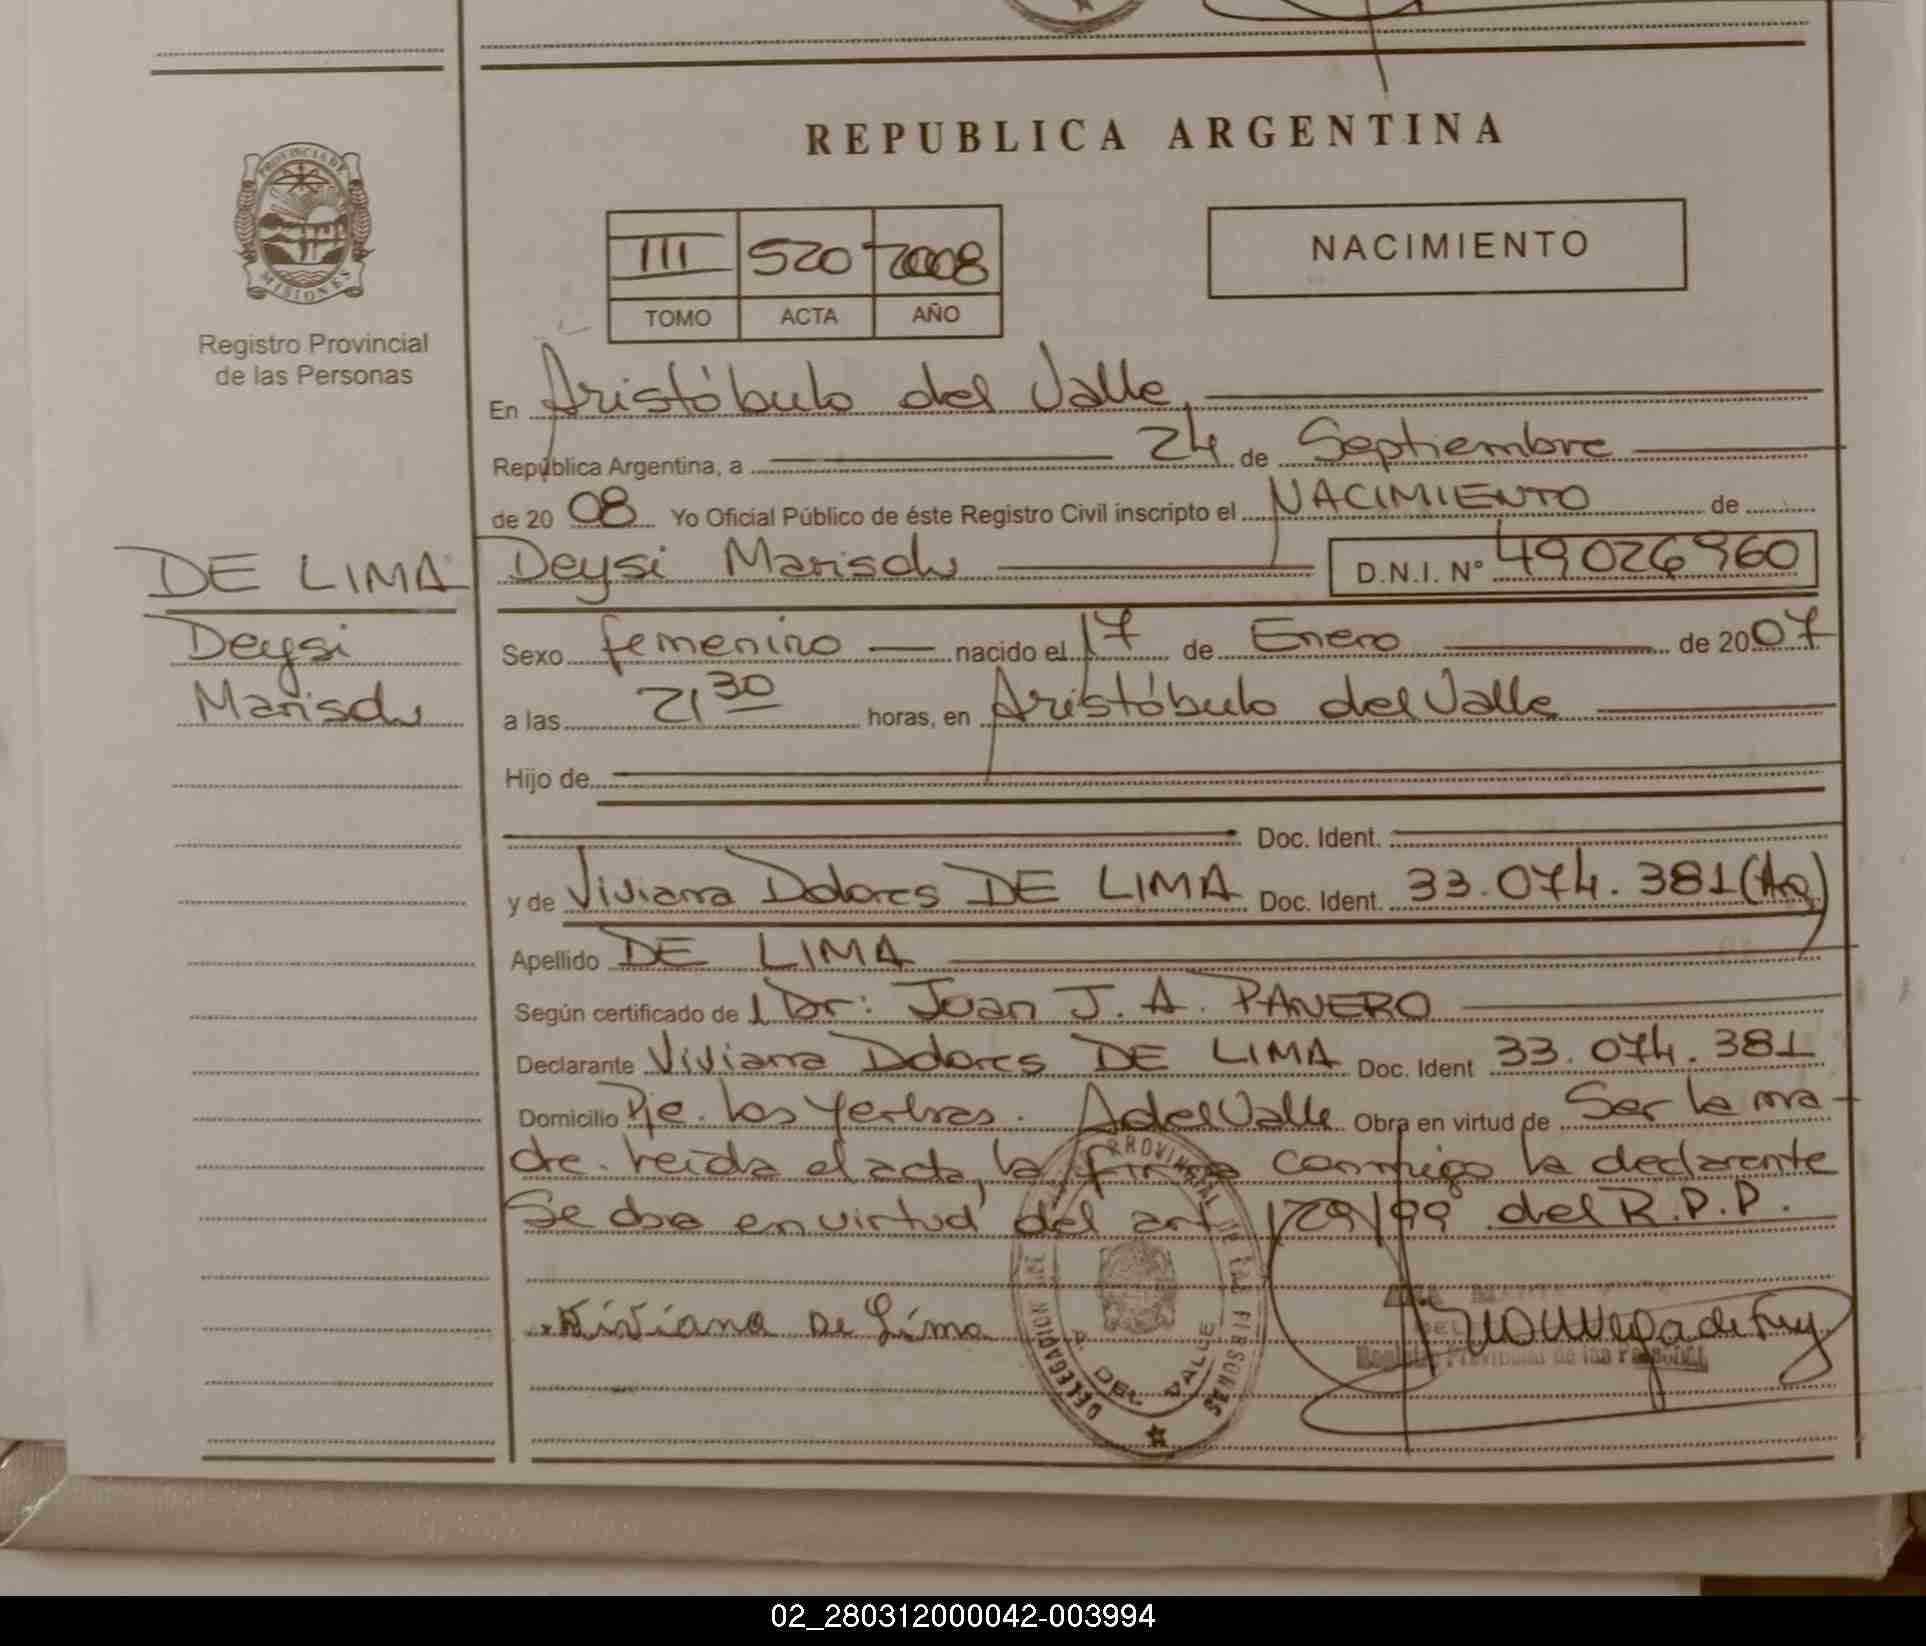 REPUBLICA ARGENTINA
PROVINCIA DE MISIONES
Registro Provincial
de las Personas
III 520 2008
TOMO ACTA AÑO
NACIMIENTO
En Aristóbulo del Valle,
República Argentina, a 24 de Septiembre
de 2008 Yo Oficial Público de éste Registro Civil inscripto el NACIMIENTO de
DE LIMA
Deysi
Marisol
Deysi Marisol D.N.I. Nº 49026960
Sexo femenino nacido el 17 de Enero de 2007
a las 21 30 horas, en Aristóbulo del Valle
Hijo de
Doc. Ident.
y de Viviana Dolores DE LIMA Doc. Ident. 33.074.381 (Arg)
Apellido DE LIMA
Según certificado de 1 Dr: Juan J. A. PANERO
Declarante Viviana Dolores DE LIMA Doc. Ident 33.074.381
Domicilio Pje. Los Yerbas. A del Valle Obra en virtud de Ser la ma-
dre. Leída el acta, la firma conmigo la declarante
Se obra en virtud del art 129/99 del R.P.P.
Viviana De Lima
DELEGACION PROVINCIAL DE LAS PERSONAS
A. DEL VALLE
Registro Provincial de las Personas
02_280312000042-003994